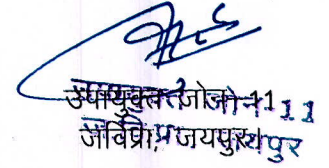 उपायुक्त जोन-11
जविप्रा, जयपुर